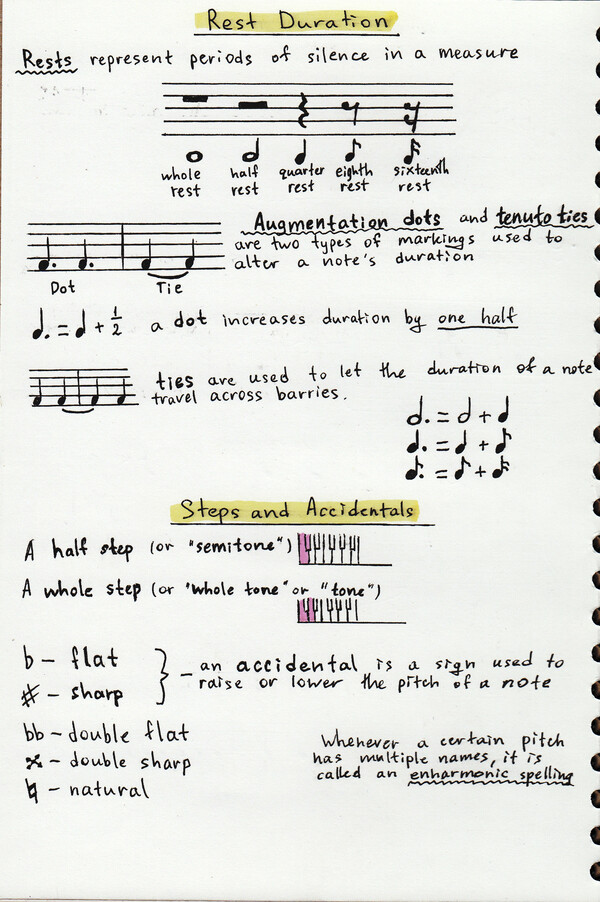 Rest Duration
Rests represent periods of silence in a measure
whole rest
half rest
quarter rest
eighth rest
sixteenth rest
Augmentation dots and tenuto ties
are two types of markings used to
alter a note's duration
Dot Tie
= + 1/2 a dot increases duration by one half
ties are used to let the duration of a note
travel across barries.
= +
= +
= +
Steps and Accidentals
A half step (or "semitone")
A whole step (or "whole tone" or "tone")
b - flat
# - sharp
- an accidental is a sign used to
raise or lower the pitch of a note
bb - double flat
x - double sharp
♮ - natural
Whenever a certain pitch
has multiple names, it is
called an enharmonic spelling